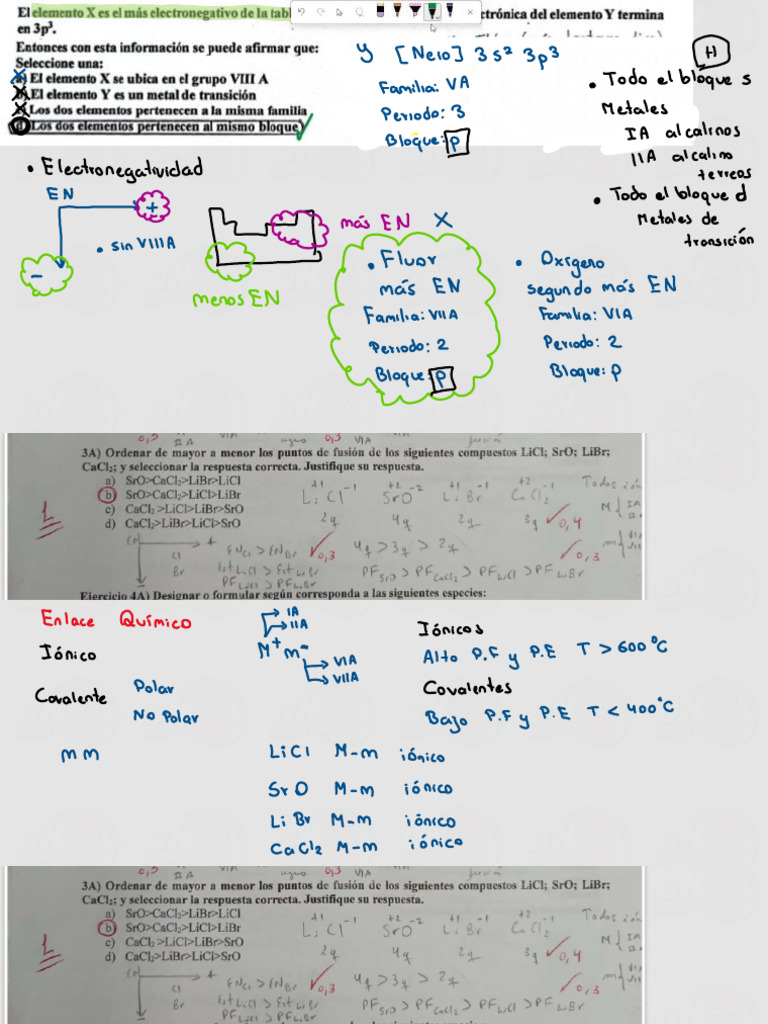 El elemento X es el más electronegativo de la tabl
ctrónica del elemento Y termina
en 3p³.
Entonces con esta información se puede afirmar que:
Seleccione una:
a) El elemento X se ubica en el grupo VIII A
b) El elemento Y es un metal de transición
c) Los dos elementos pertenecen a la misma familia
d) Los dos elementos pertenecen al mismo bloque
Y [Ne10] 3s² 3p³
Familia: VA
Periodo: 3
Bloque: p
H
• Todo el bloque s
Metales
IA alcalinos
IIA alcalino
terreos
• Todo el bloque d
Metales de
transición
• Electronegatividad
EN
+
• sin VIIIA
−
más EN X
menos EN
• Fluor
más EN
Familia: VIIA
Periodo: 2
Bloque: p
• Oxígeno
segundo más EN
Familia: VIA
Periodo: 2
Bloque: p
0,3
IIA
VIA
agua 0,3 VIA
3A) Ordenar de mayor a menor los puntos de fusión de los siguientes compuestos LiCl; SrO; LiBr;
CaCl₂; y seleccionar la respuesta correcta. Justifique su respuesta.
a) SrO>CaCl₂>LiBr>LiCl
b) SrO>CaCl₂>LiCl>LiBr
c) CaCl₂>LiCl>LiBr>SrO
d) CaCl₂>LiBr>LiCl>SrO
1
+1 −1 +2 −2 +1 −1 +2
LiCl SrO LiBr CaCl₂
2q 4q 2q 3q 0,4
Todos ión
M IA
EN +
Cl
Br
EN Cl > EN Br 0,3
PF LiCl > PF LiBr
4q > 3q > 2q 0,3
PF SrO > PF CaCl₂ > PF LiCl > PF LiBr
Ejercicio 4A) Designar o formular según corresponda a las siguientes especies:
Enlace Químico
Iónico
Covalente
Polar
No Polar
m m
IA
IIA
M⁺m⁻
VIA
VIIA
Iónicos
Alto P.F y P.E T > 600°C
Covalentes
Bajo P.F y P.E T < 400°C
LiCl M-m iónico
SrO M-m iónico
LiBr M-m iónico
CaCl₂ M-m iónico
0,3
IIA
VIA
agua 0,3 VIA
3A) Ordenar de mayor a menor los puntos de fusión de los siguientes compuestos LiCl; SrO; LiBr;
CaCl₂; y seleccionar la respuesta correcta. Justifique su respuesta.
a) SrO>CaCl₂>LiBr>LiCl
b) SrO>CaCl₂>LiCl>LiBr
c) CaCl₂>LiCl>LiBr>SrO
d) CaCl₂>LiBr>LiCl>SrO
1
+1 −1 +2 −2 +1 −1 +2
LiCl SrO LiBr CaCl₂
2q 4q 2q 3q 0,4
Todos ión
M IA
EN +
Cl
Br
EN Cl > EN Br 0,3
PF LiCl > PF LiBr
4q > 3q > 2q 0,3
PF SrO > PF CaCl₂ > PF LiCl > PF LiBr